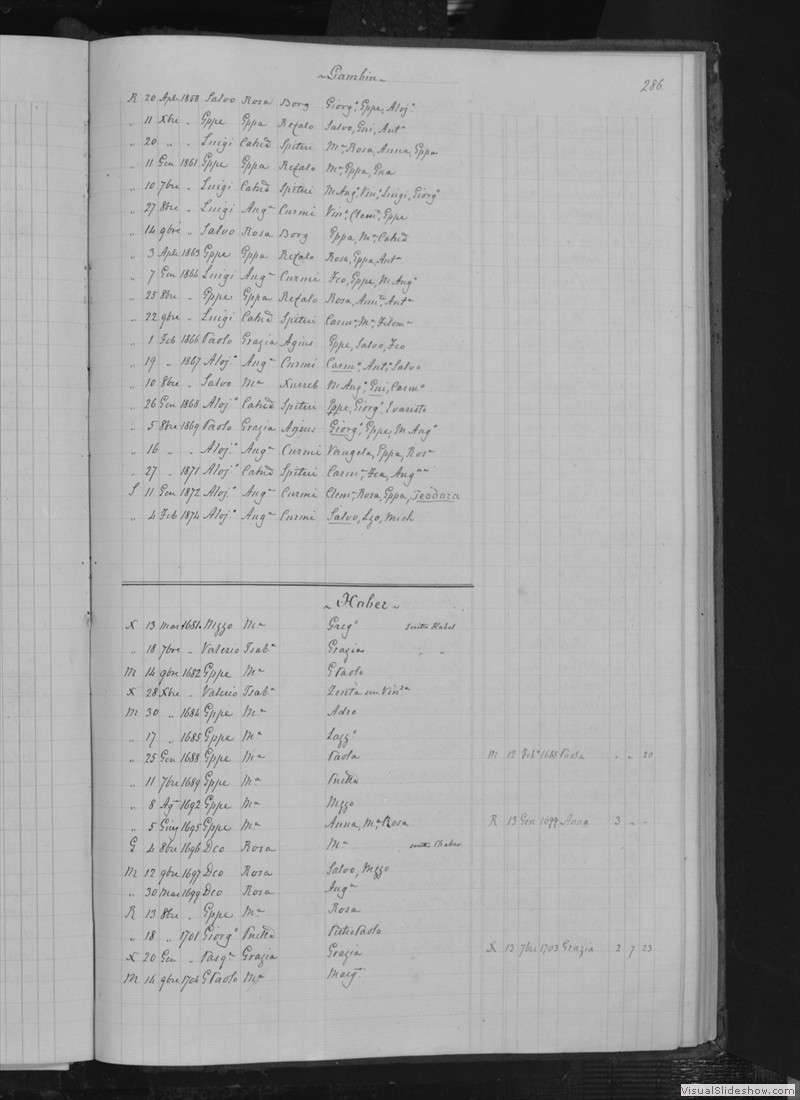 Gambin
286
R 20 Aple 1858 Salvo Rosa Borg Giorgo, Gppe, Alojo
„ 11 Xbre „ Gppe Gppa Refalo Salvo, Gui, Anta
„ 20 „ „ Luigi Catnd Spiteri Ma, Rosa, Anna, Gppa
„ 11 Gen 1861 Gppe Gppa Refalo Ma, Gppa, Gua
„ 10 7bre „ Luigi Catnd Spiteri M Anga, Vino, Luigi, Giorgo
„ 27 8bre „ Luigi Anga Curmi Vino, Clemo, Gppe
„ 14 9bre „ Salvo Rosa Borg Gppa, Ma, Catnd
„ 3 Aple 1863 Gppe Gppa Refalo Rosa, Gppa, Anta
„ 7 Gen 1864 Luigi Anga Curmi Fco, Gppe, M Ango
„ 25 8bre „ Gppe Gppa Refalo Rosa, Annta, Anta
„ 22 9bre „ Luigi Catnd Spiteri Carma, Ma, Filoma
„ 1 Feb 1866 Paolo Grazia Agius Gppe, Salvo, Fco
„ 19 „ 1867 Alojo Anga Curmi Carmo, Anto, Salvo
„ 10 8bre „ Salvo Ma Xuereb M Ango, Gui, Carmo
„ 26 Gen 1868 Alojo Catnd Spiteri Gppe, Giorgo, Evaristo
„ 5 8bre 1869 Paolo Grazia Agius Giorgo, Gppe, M Ango
„ 16 „ „ Alojo Anga Curmi Vangela, Gppa, Rosa
„ 27 „ 1871 Alojo Catnd Spiteri Carma, Fca, Anga
S 11 Gen 1872 Alojo Anga Curmi Clema, Rosa, Gppa, Teodora
„ 4 Feb 1874 Alojo Anga Curmi Salvo, Lzo, Mich
Haber
X 13 Mar 1681 Mzzo Ma Grego scritto Habel
„ 18 7bre „ Valerio Isaba Grazia „ „
M 14 9bre 1682 Gppe Ma GPaolo
X 28 Xbre „ Valerio Isaba Zenta un Vinza
M 30 „ 1684 Gppe Ma Adeo
„ 17 „ 1685 Gppe Ma Lazzo
„ 25 Gen 1688 Gppe Ma Paola M 12 Feb 1688 Paola „ „ 20
„ 11 7bre 1689 Gppe Ma Pnilla
„ 8 Ago 1692 Gppe Ma Mzzo
„ 5 Giug 1695 Gppe Ma Anna, Ma, Rosa R 13 Gen 1699 Anna 3 „ „
G 4 8bre 1696 Dco Rosa Ma scritto Chaber
M 12 9bre 1697 Dco Rosa Salvo, Mzzo
„ 30 Mar 1699 Dco Rosa Anga
R 13 8bre „ Gppe Ma Rosa
„ 18 „ 1701 Giorgo Pnilla Pietro Paolo
X 20 Gen „ Pasqa Grazia Grazia X 13 7bre 1703 Grazia 2 7 23
M 14 9bre 1704 GPaolo Ma Margt
VisualSlideshow.com